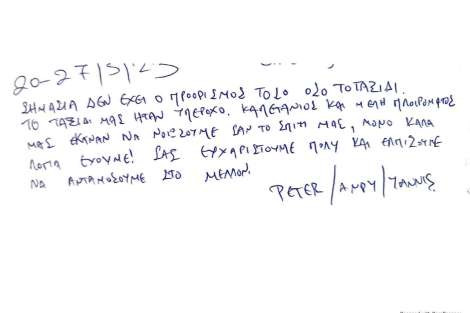 20-27/5/25
ΣΗΜΑΣΙΑ ΔΕΝ ΕΧΕΙ Ο ΠΡΟΟΡΙΣΜΟΣ ΤΟΣΟ ΟΣΟ ΤΟ ΤΑΞΙΔΙ.
ΤΟ ΤΑΞΙΔΙ ΜΑΣ ΗΤΑΝ ΥΠΕΡΟΧΟ. ΚΑΠΕΤΑΝΙΟΣ ΚΑΙ ΜΕΛΗ ΠΛΟΙΡΟΜΑΤΟΣ
ΜΑΣ ΕΚΑΝΑΝ ΝΑ ΝΟΙΣΟΥΜΕ ΣΑΝ ΤΟ ΣΠΙΤΙ ΜΑΣ, ΜΟΝΟ ΚΑΛΑ
ΛΟΓΙΑ ΕΧΟΥΜΕ! ΣΑΣ ΕΥΧΑΡΙΣΤΟΥΜΕ ΠΟΛΥ ΚΑΙ ΕΛΠΙΖΟΥΜΕ
ΝΑ ΑΝΤΑΜΟΣΟΥΜΕ ΣΤΟ ΜΕΛΛΟΝ!
PETER/ΑΝΡΥ/ΓΙΑΝΝΙΣ